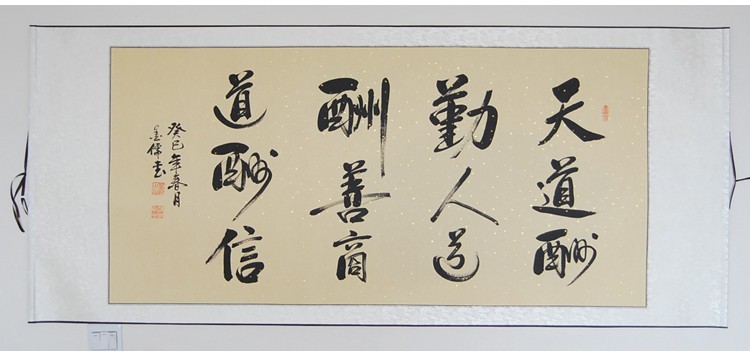 天道酬
勤人道
酬善商
道酬信
癸巳年春月